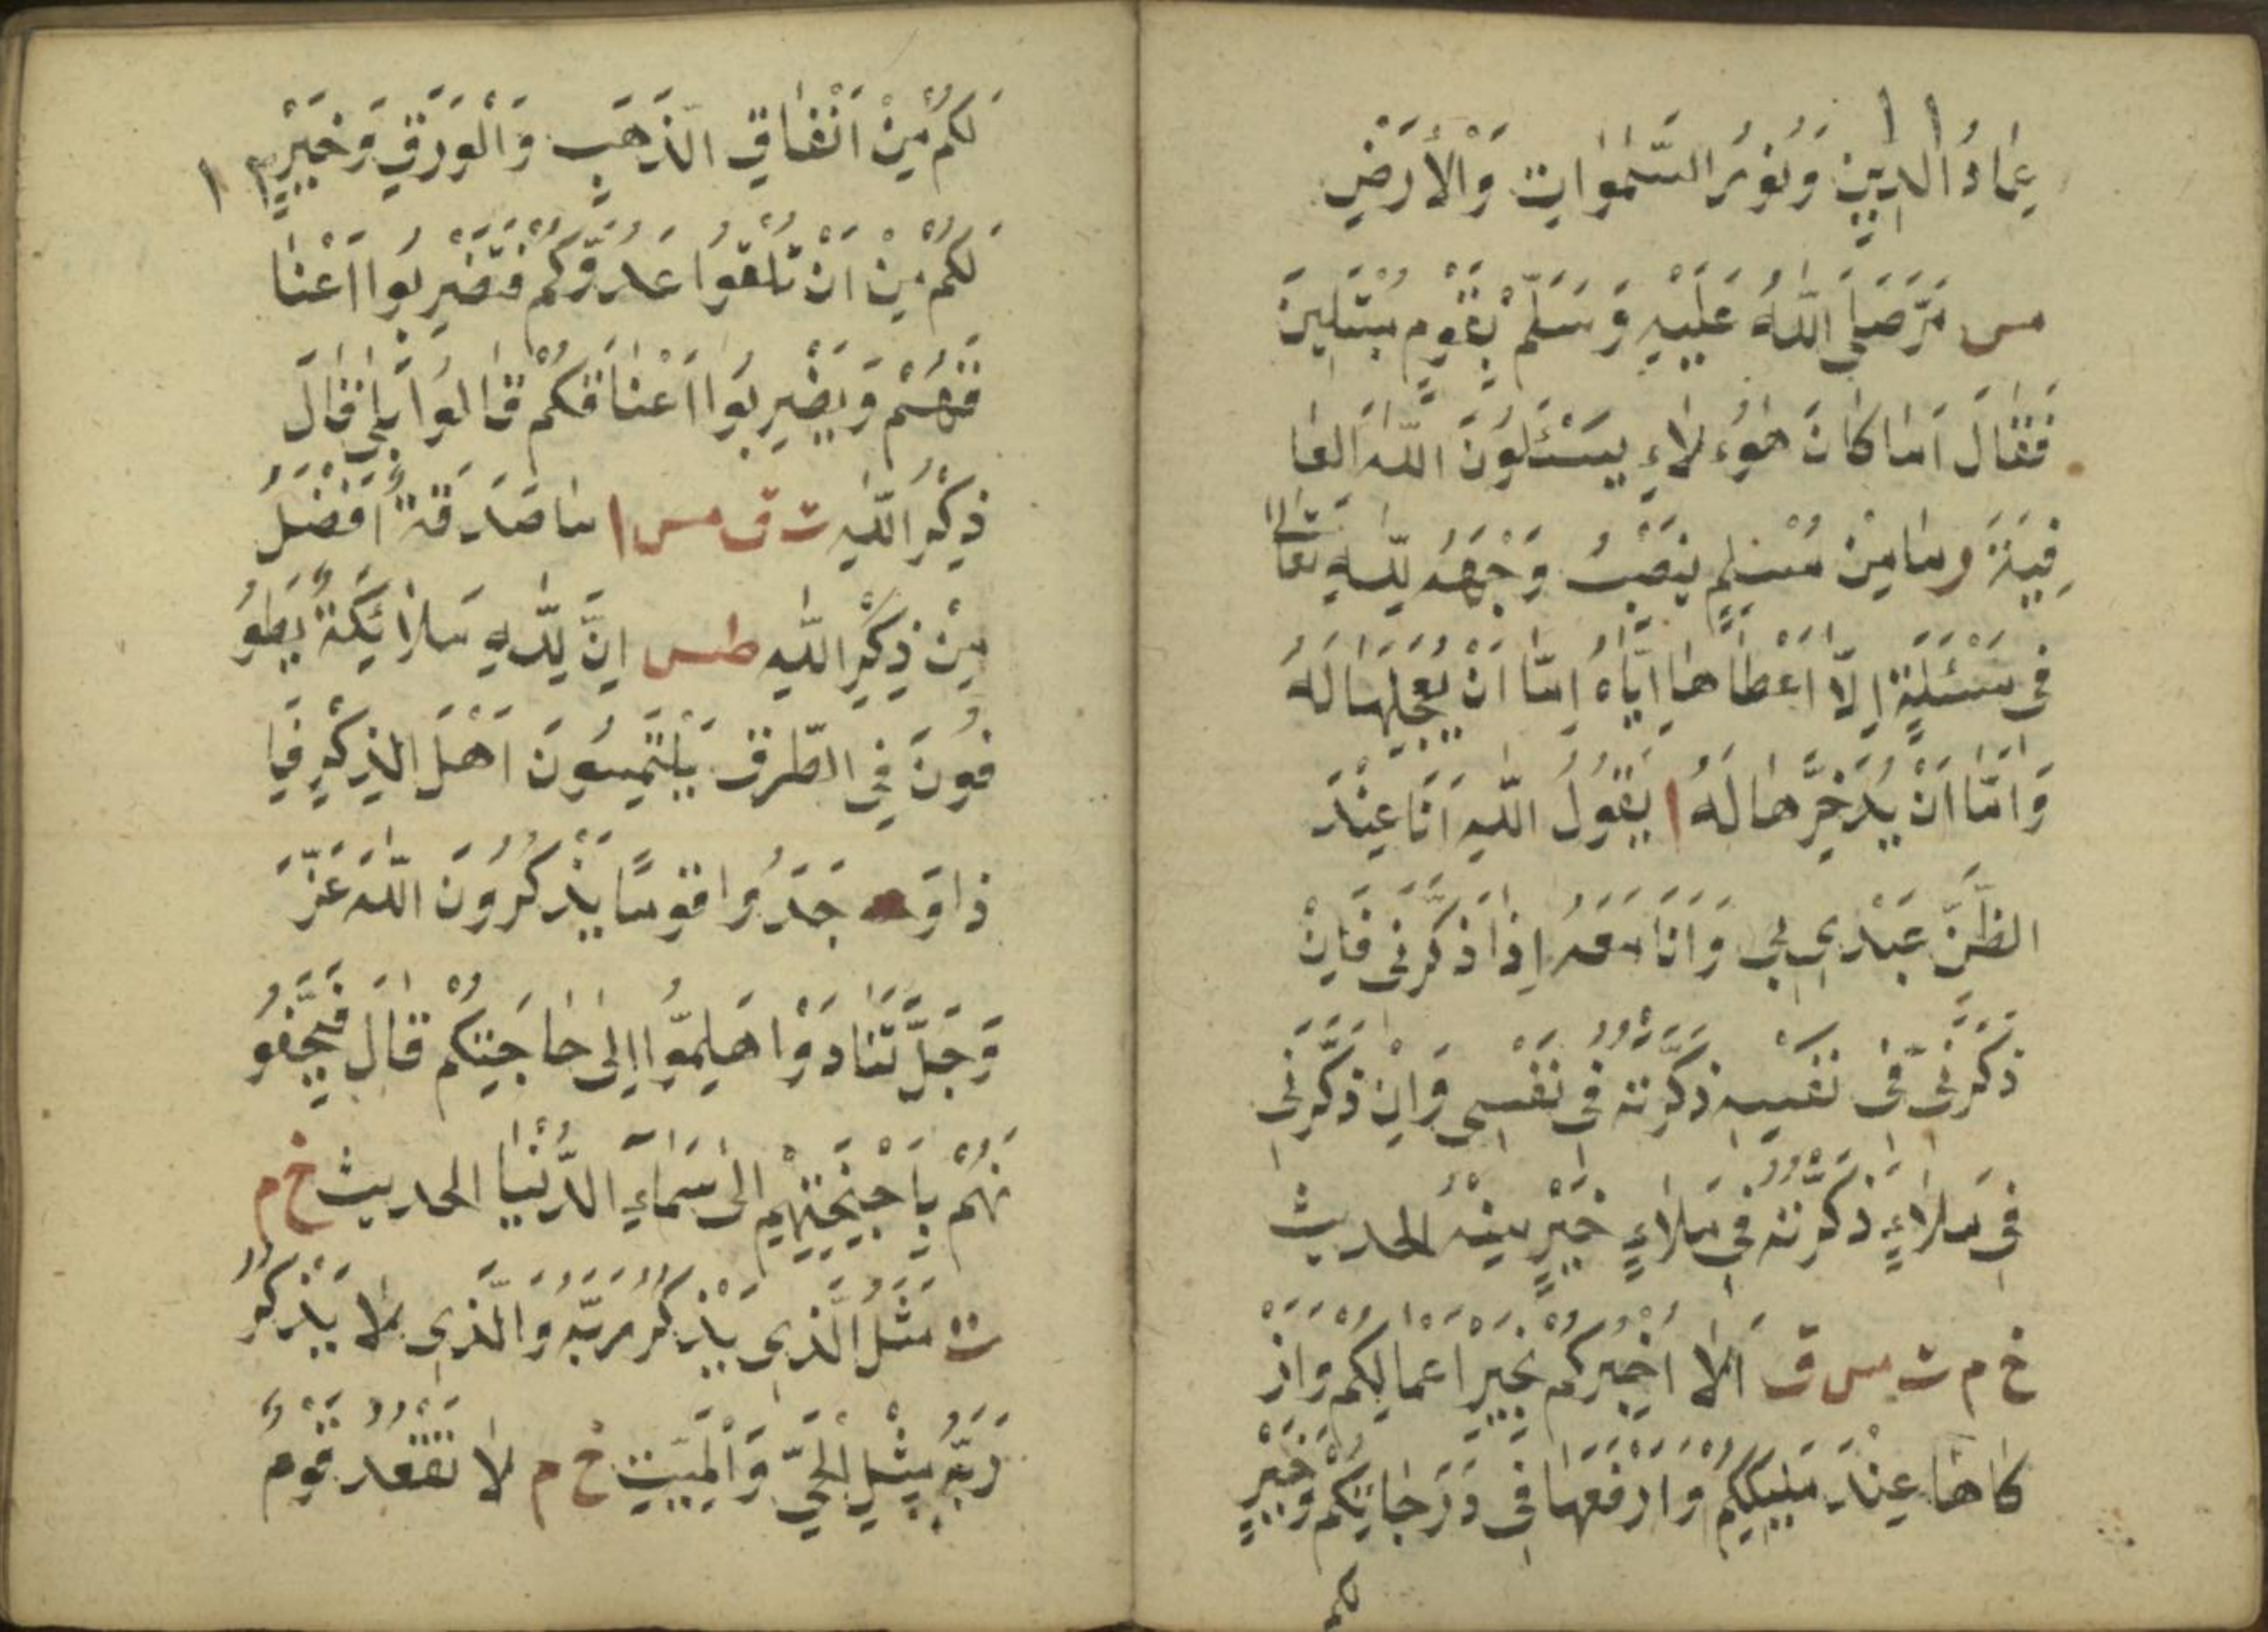 ١١
عِمَادُ الدِّينِ وَنُورُ السَّمٰوَاتِ وَالْأَرْضِ
مس مَرَّ صَلَى اللّٰهُ عَلَيْهِ وَسَلَّمْ بِقَوْمٍ مُبْتَلِينَ
فَقَالَ اَمَا كَانَ هٰؤُلَاءِ يَسْئَلُونَ اللّٰهَ العَا
فِيَةَ وَمَا مِنْ مُسْلِمٍ يَنْصِبُ وَجْهَهُ لِلّٰهِ تَعَالىٰ
فِى مَسْئَلَةٍ اِلَّا اَعْطَاهَا اِيَّاهُ اِمَّا اَنْ يُعَجِّلَهَا لَهُ
وَاِمَّا اَنْ يُدَخِّرَّهَا لَهُ ا يَقُولُ اللّٰهِ اَنَا عِنْدَ
الظَّنَّ عَبْدِي بِي وَاَنَا مَعَهُ اِذَا ذَكَّرَنِى فَاِنْ
ذَكَّرَنِى فِى نَفْسِهِ ذَكَّرْتُهُ فِى نَفْسِى وَاِنْ ذَكَّرَنِى
فِى مَلَاءٍ ذَكَّرْتُهُ فِى مَلَاءٍ خَيْرٍ مِنْهُ الحديث
خ م ت س ق اَلَا اُخْبِرُكُمْ بِخَيْرِ اَعْمَالِكُمْ وَاَزْ
كَاهَا عِنْدَ مَلِيكِكُمْ وَاَرْفَعَهَا فِى دَرَجَاتِكُمْ وَخَيْرٍ
لكم
١٢
لَكُمْ مِنْ اَنْفَاقِ الذَّهَبِ وَالْوَرَقِ وَخَيْرٍ
لَكُمْ مِنْ اَنْ تَلْقُوا عَدُوَّكُمْ فَتَضْرِبُوا اَعْنَا
قَهُمْ وَيَضْرِبُوا اَعْنَاقَكُمْ قَالُوا بَلٰى قَالَ
ذِكْرُ اللّٰهِ ت ق مس ا مَا صَدَقَةٌ اَفْضَلُ
مِنْ ذِكْرِ اللّٰهِ طس اِنَّ لِلّٰهِ مَلَائِكَةٌ يَطُو
فُونَ فِى الطُّرقِ يَلْتَمِسُونَ اَهْلَ الذِكْرِ فَاِ
ذَا وَجَدُوا قومًا يَذْكُرُونَ اللّٰهَ عَزَّ
وَجَلَّ تَنَادَوْا هَلِمُّوا اِلىٰ حَاجَتِكُمْ قَالَ فَيَحُفُّو
نَهُمْ بِاَجْنِحَتِهِمْ اِلىٰ سَمَاءِ الدُّنْيَا الحديث خ م
ت مَثَلُ الَّذِى يَذْكُرُ رَبَّهُ وَالَّذِى لَا يَذْكُرُ
رَبَّهُ مِثْلِ الْحَيِّ وَالْمَيِّتِ خ م لَا تَقْعُدُ قَوْمٌ